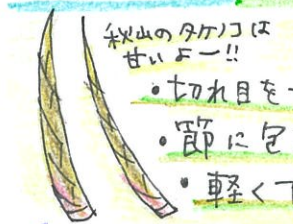 秋山のタケノコは
甘いよー!!
・切れ目を
・節に包
・軽く